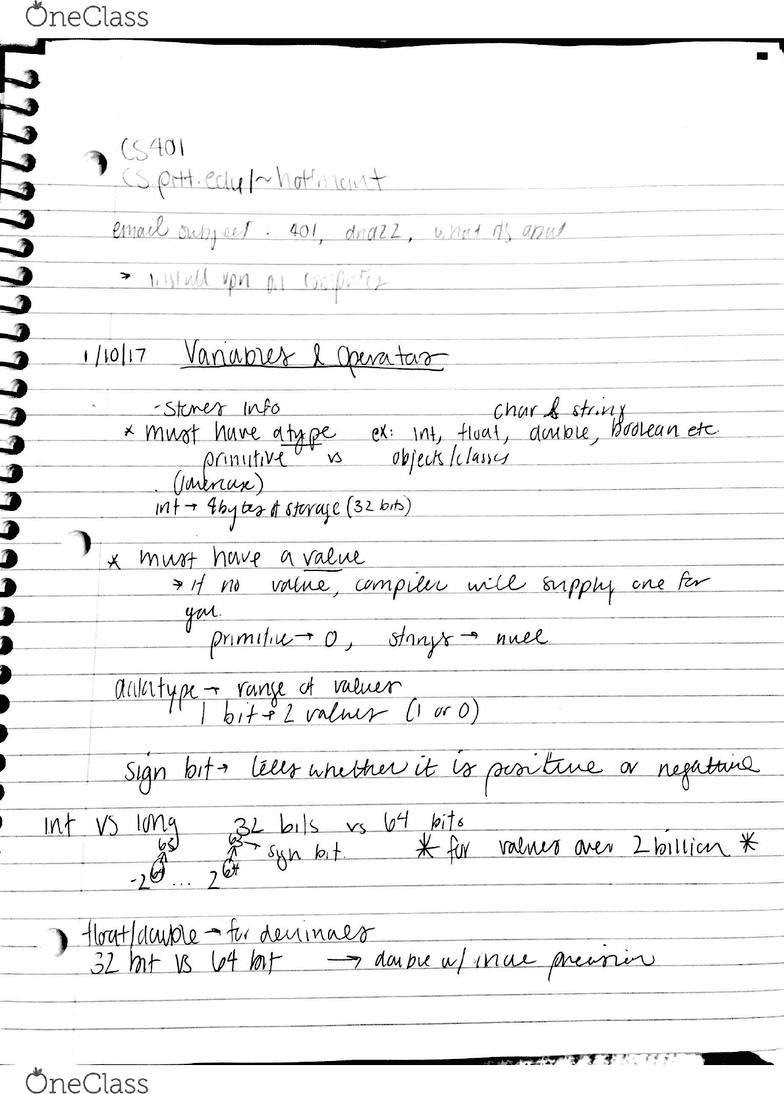 OneClass
CS401
cs.pitt.edu/~hoffmant
email subject. 401, dnd22, what it's about
→ install vpn on computer
1/10/17 Variables & Operators
- Stores info
char & string
* must have a type ex: int, float, double, boolean etc.
primitive vs objects/classes
(lowercase)
int → 4 bytes of storage (32 bits)
* must have a value
→ if no value, compiler will supply one for
you.
primitive → 0, strings → null
datatype → range of values
1 bit → 2 values (1 or 0)
sign bit → tells whether it is positive or negative
int vs long 32 bits vs 64 bits
63 63 sign bit. * for values over 2 billion *
-2^64 ... 2^64
float/double → for decimals
32 bit vs 64 bit → double w/ more precision
OneClass